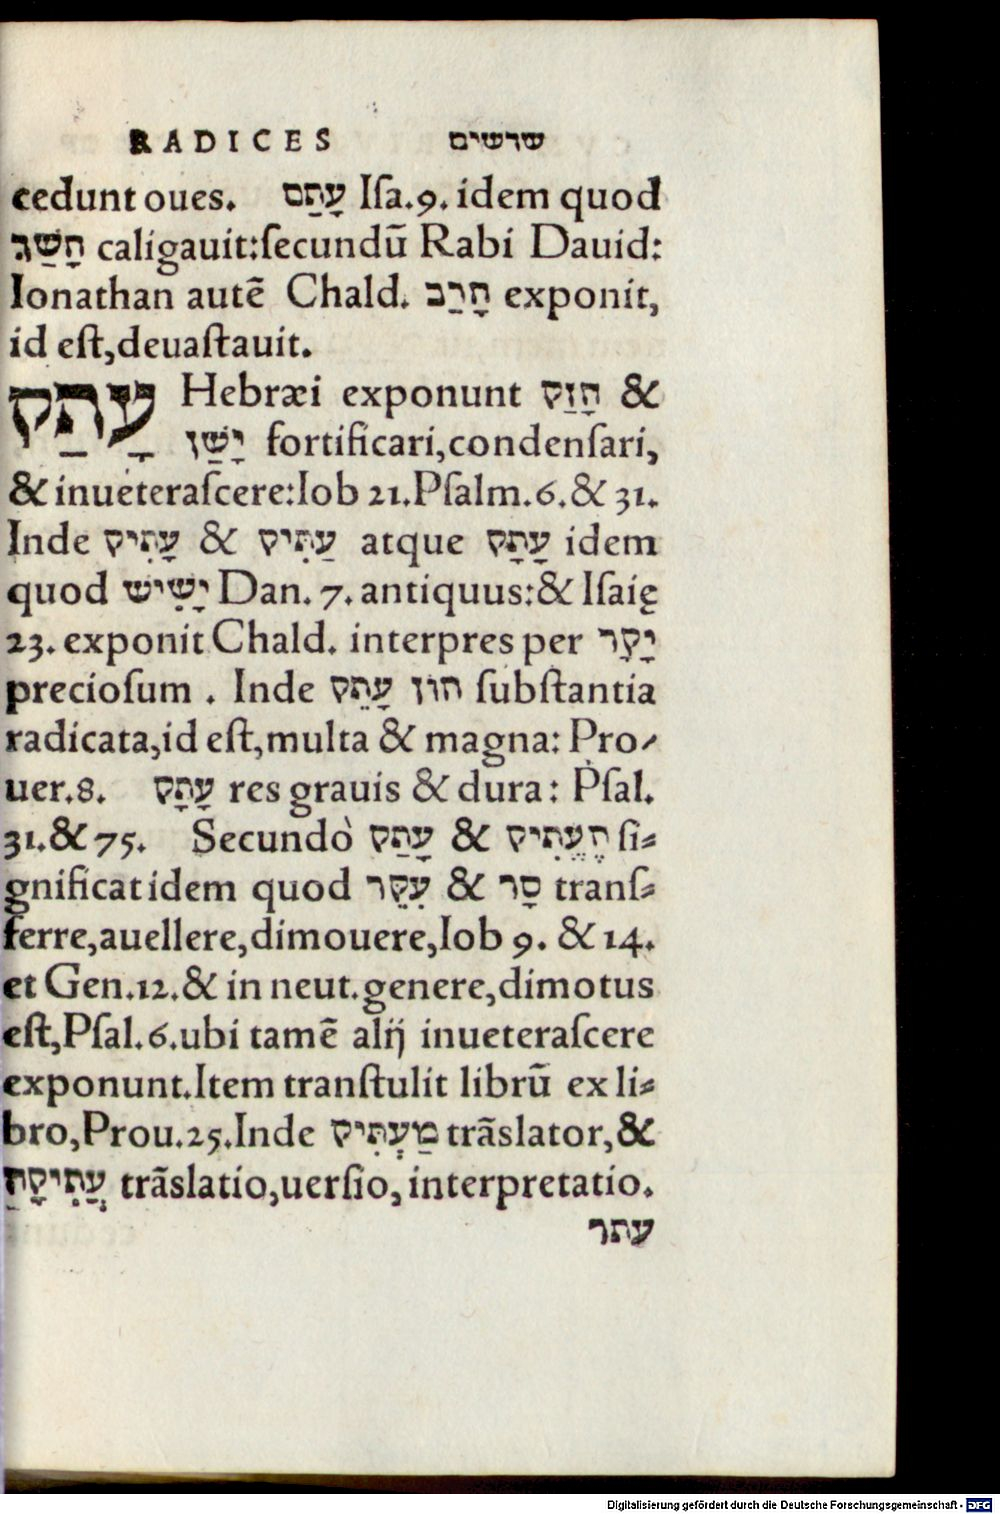 RADICES שרשים
cedunt oues. עָתַם Iſa.9. idem quod
חָשַׁך caligauit:ſecundū Rabi Dauid:
Ionathan autē Chald. חָרַב exponit,
id eſt,deuaſtauit.
עָתַק Hebræi exponunt חָזַק &
יָשַׁן fortificari,condenſari,
& inueteraſcere:Iob 21.Pſalm.6.& 31.
Inde עָתִיק & עַתִּיק atque עָתָק idem
quod יָשִׁישׁ Dan. 7. antiquus:& Iſaię
23. exponit Chald. interpres per יָקָר
precioſum . Inde הוֹן עָתֵק ſubſtantia
radicata,id eſt,multa & magna: Pro-
uer.8. עָתָק res grauis & dura: Pſal.
31.& 75. Secundò עָתַק & הֶעֱתִּיק ſi-
gnificat idem quod עִקֵּר & סָר tranſ-
ferre,auellere,dimouere,Iob 9. & 14.
et Gen.12.& in neut.genere,dimotus
eſt,Pſal.6.ubi tamē alij inueteraſcere
exponunt.Item tranſtulit librū ex li-
bro,Prou.25.Inde מַעְתִּיק trāslator,&
עֲתִּיקָה trāslatio,uerſio, interpretatio.
עתר
Digitalisierung gefördert durch die Deutsche Forschungsgemeinschaft - DFG